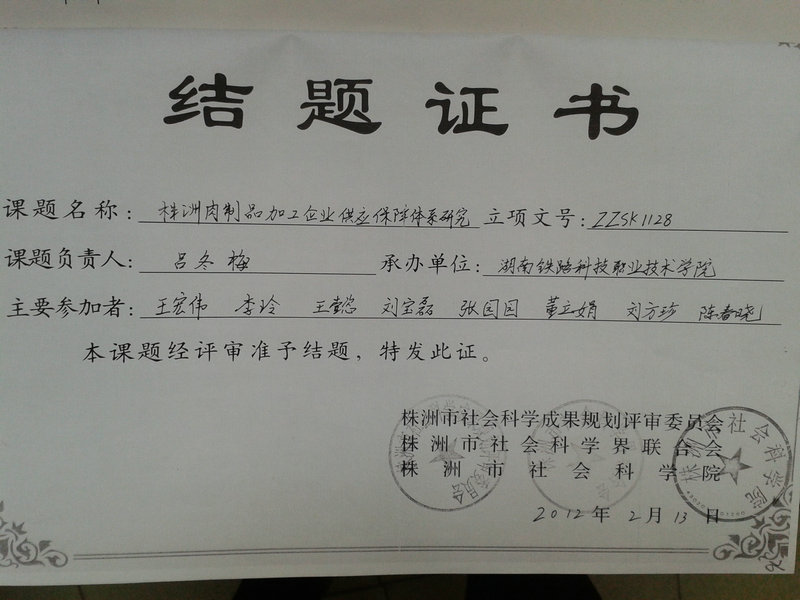 结题证书
课题名称：株洲肉制品加工企业供应保障体系研究 立项文号：ZZSK1128
课题负责人：吕冬梅 承办单位：湖南铁路科技职业技术学院
主要参加者：王宏伟 李玲 王懿 刘宝磊 张园园 董立娟 刘方珍 陈春晓
本课题经评审准予结题，特发此证。
株洲市社会科学成果规划评审委员会
株洲市社会科学界联合会
株洲市社会科学院
2012年2月13日
株洲市社会科学院